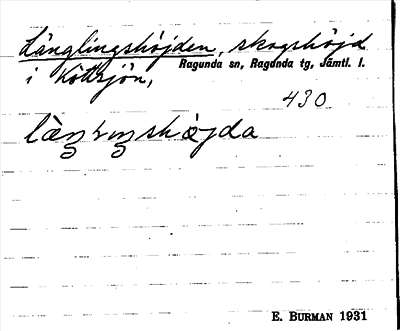 Länglingshöjden, skogshöjd
i Köttsjön, Ragunda sn, Ragunda tg, Jämtl. l.
430
E. BURMAN 1931